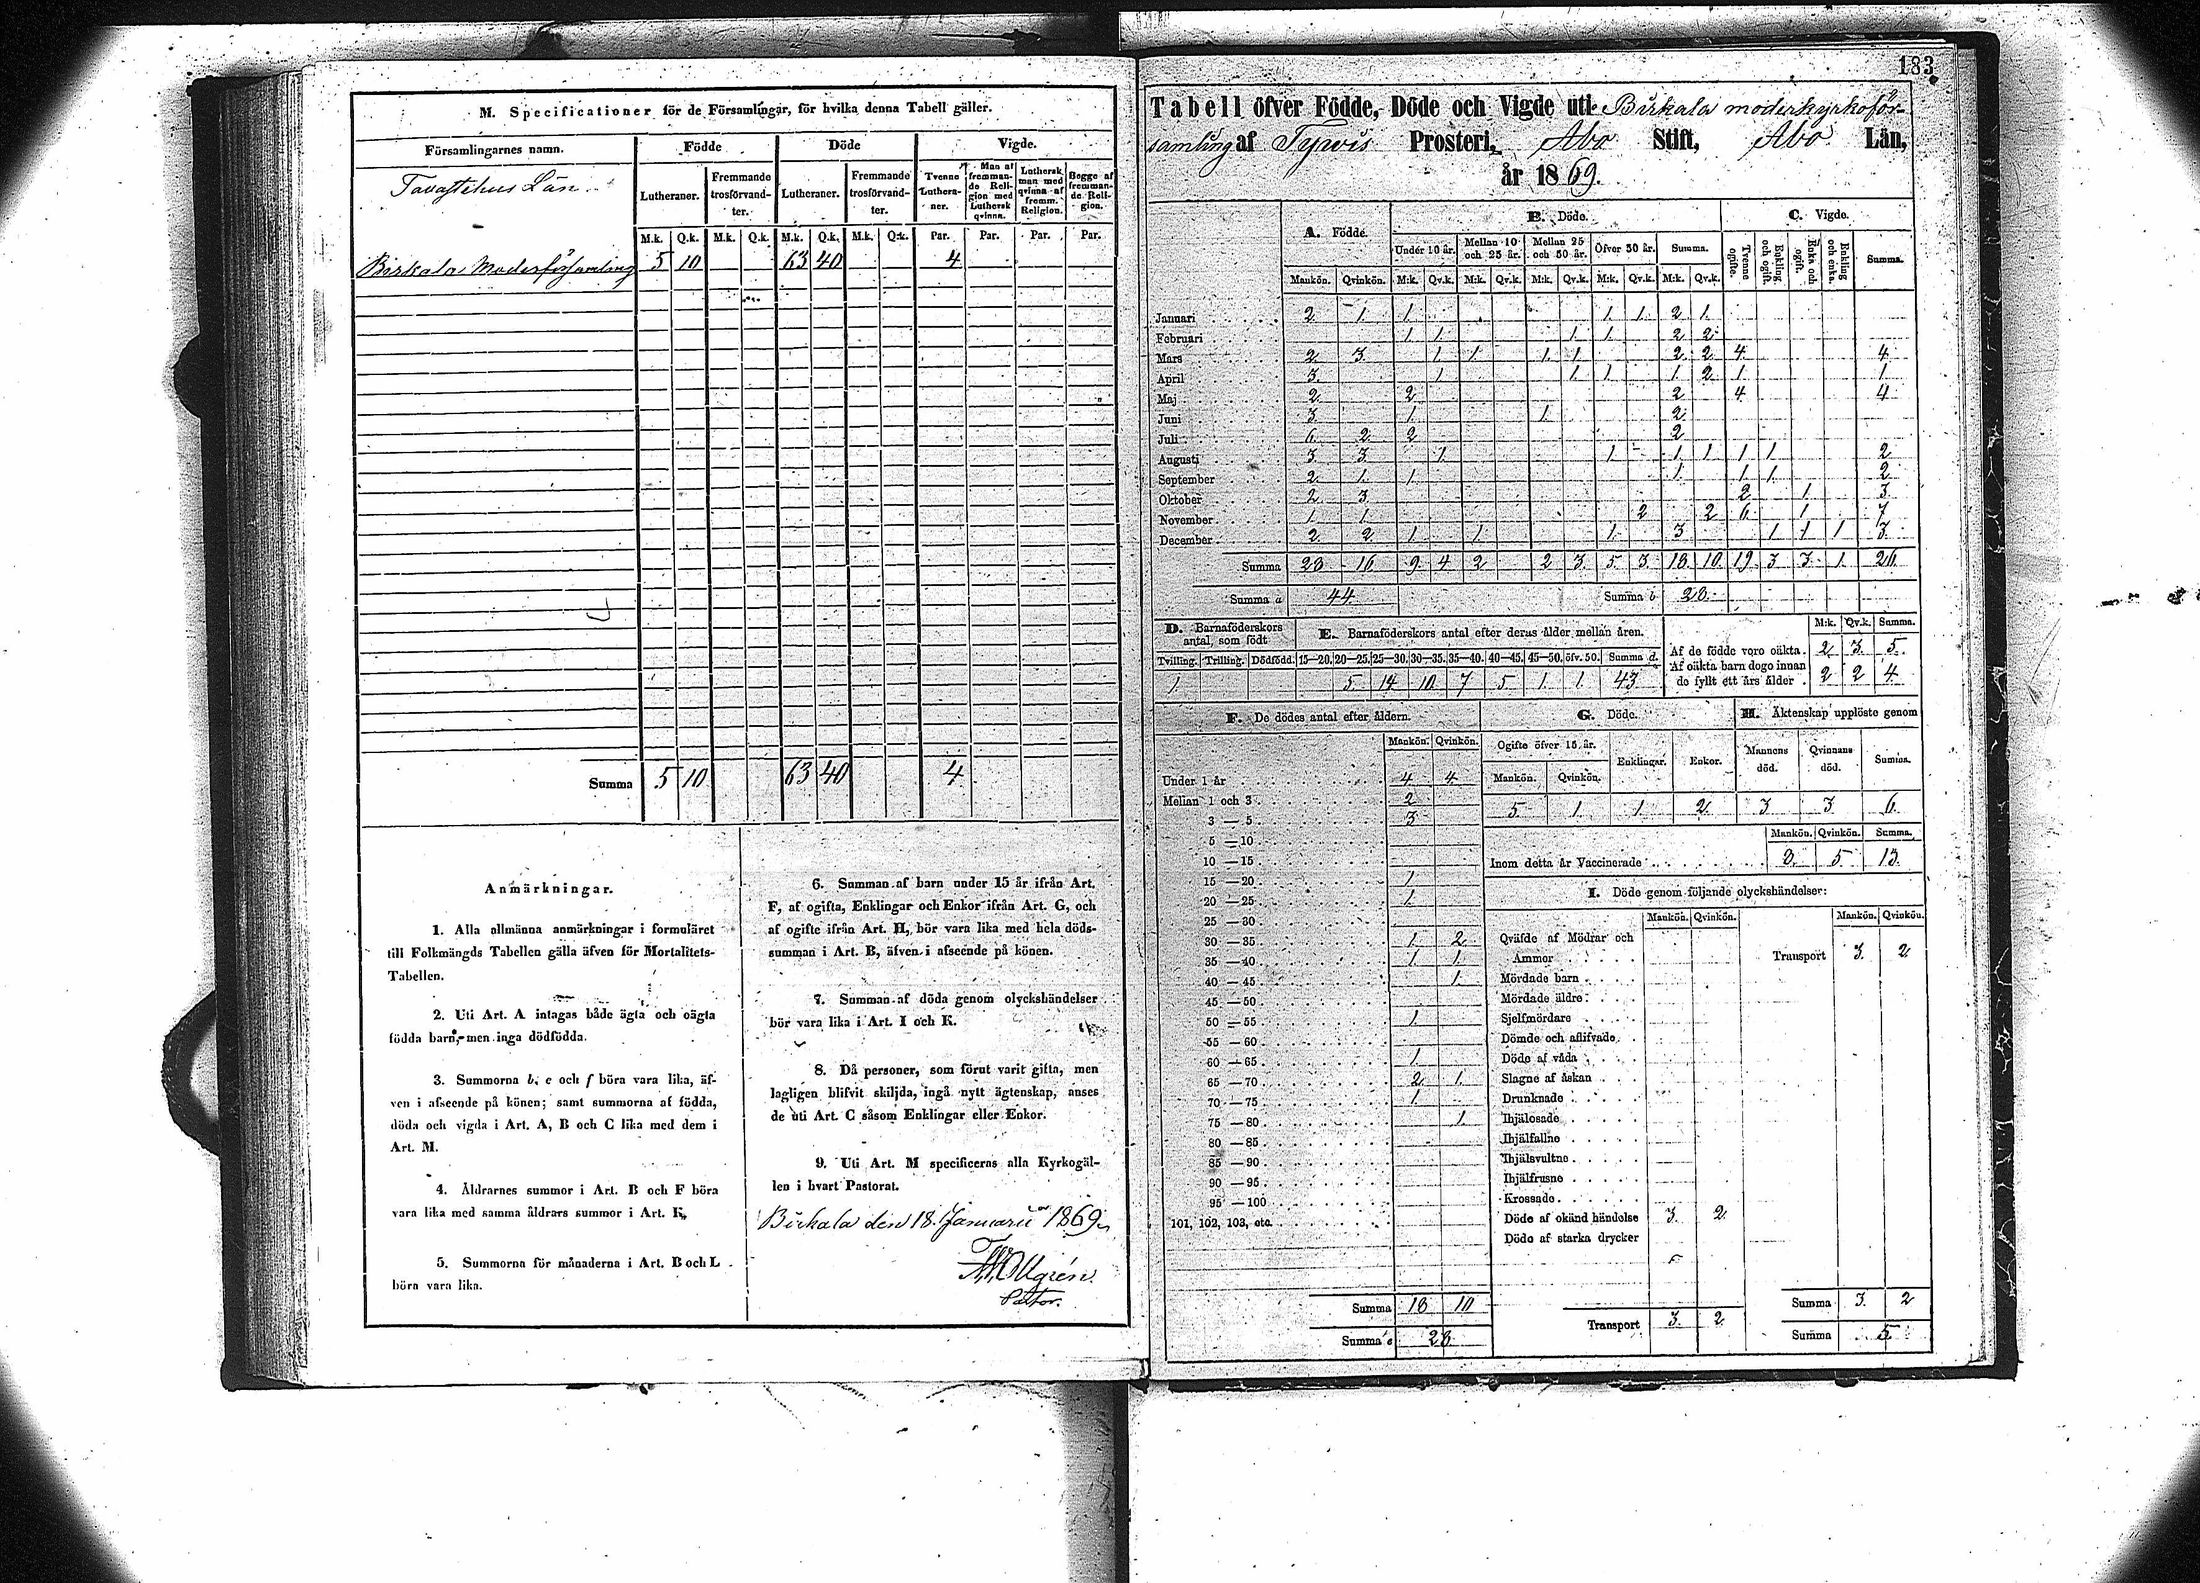 M. Specificationer för de Församlingar, för hvilka denna Tabell gäller.
Församlingarnes namn. Födde Döde Vigde.
Lutheraner. Fremmande trosförvandter. Lutheraner. Fremmande trosförvandter. Tvenne Lutheraner. Man af fremmande Religion med Luthersk qvinna. Luthersk man med qvinna af fremm. Religion. Begge af fremmande Religion.
Tavastehus Län
M.k. Q.k. M.k. Q.k. M.k. Q.k. M.k. Q.k. Par. Par. Par. Par.
Birkala Moderförsamling 5 10 63 40 4
Summa 5 10 63 40 4
Anmärkningar.
1. Alla allmänna anmärkningar i formuläret
till Folkmängds Tabellen gälla äfven för Mortalitets-
Tabellen.
2. Uti Art. A intagas både ägta och oägta
födda barn, men inga dödfödda.
3. Summorna b, e och f böra vara lika, äf-
ven i afseende på könen; samt summorna af födda,
döda och vigda i Art. A, B och C lika med dem i
Art. M.
4. Åldrarnes summor i Art. B och F böra
vara lika med samma åldrars summor i Art. K.
5. Summorna för månaderna i Art. B och L
böra vara lika.
6. Summan af barn under 15 år ifrån Art.
F, af ogifta, Enklingar och Enkor ifrån Art. G, och
af ogifte ifrån Art. H, bör vara lika med hela döds-
summan i Art. B, äfven i afseende på könen.
7. Summan af döda genom olyckshändelser
bör vara lika i Art. I och K.
8. Då personer, som förut varit gifta, men
lagligen blifvit skiljda, ingå nytt ägtenskap, anses
de uti Art. C såsom Enklingar eller Enkor.
9. Uti Art. M specificeras alla Kyrkogäl-
len i hvart Pastorat.
Birkala den 18. Januarii 1869
Pastor.
183
Tabell öfver Födde, Döde och Vigde uti Birkala moderkyrkoför-
samling af Tyrvis Prosteri, Åbo Stift, Åbo Län,
år 1869.
A. Födde. B. Döde. C. Vigde.
Under 10 år. Mellan 10 och 25 år. Mellan 25 och 50 år. Öfver 50 år. Summa. Tvenne ogifte. Enkling och ogift. Enka och ogift. Enkling och enka. Summa.
Mankön. Qvinkön. M:k. Qv.k. M:k. Qv.k. M:k. Qv.k. M:k. Qv.k. M:k. Qv.k.
Januari 2 1 1 1 1 2 1
Februari 1 1 1 1 2 2
Mars 2 3 1 1 1 1 2 2 4 4
April 3 1 1 1 1 2 1 1
Maj 2 2 2 4 4
Juni 3 1 1 2
Juli 6 2 2 2
Augusti 3 3 1 1 1 1 1 1 2
September 2 1 1 1 1 1 2
Oktober 2 3 2 1 3
November 1 1 2 2 6 1 7
December 2 2 1 1 1 3 1 1 1 3
Summa 28 16 9 4 2 2 3 5 3 18 10 19 3 3 1 26
Summa a 44 Summa b 28
D. Barnaföderskors antal, som födt
E. Barnaföderskors antal efter deras ålder mellan åren.
M:k. Qv.k. Summa.
Tvilling. Trilling. Dödfödd. 15—20. 20—25. 25—30. 30—35. 35—40. 40—45. 45—50. öfv. 50. Summa d.
1 5 14 10 7 5 1 1 43
Af de födde voro oäkta. 2 3 5
Af oäkta barn dogo innan
de fyllt ett års ålder 2 2 4
F. De dödes antal efter åldern.
Mankön. Qvinkön.
Under 1 år 4 4
Mellan 1 och 3 2
3 — 5 3
5 — 10
10 — 15
15 — 20 1
20 — 25 1
25 — 30
30 — 35 1 2
35 — 40 1 1
40 — 45 1
45 — 50
50 — 55 1
55 — 60
60 — 65 1
65 — 70 2 1
70 — 75 1
75 — 80 1
80 — 85
85 — 90
90 — 95
95 — 100
101, 102, 103, etc.
Summa 18 10
Summa e 28
G. Döde.
Ogifte öfver 15 år. Enklingar. Enkor.
Mankön. Qvinkön.
5 1 1 2
H. Äktenskap upplöste genom
Mannens död. Qvinnans död. Summa.
3 3 6
Mankön. Qvinkön. Summa.
Inom detta år Vaccinerade 8 5 13
I. Döde genom följande olyckshändelser:
Mankön. Qvinkön. Mankön. Qvinkön.
Qväfde af Mödrar och
Ammor
Mördade barn
Mördade äldre
Sjelfmördare
Dömde och aflifvade
Döde af våda
Slagne af åskan
Drunknade
Ihjälosade
Ihjälfallne
Ihjälsvultne
Ihjälfrusne
Krossade
Döde af okänd händelse 3 2
Döde af starka drycker
Transport 3 2
Transport 3 2
Summa 3 2
Summa 5